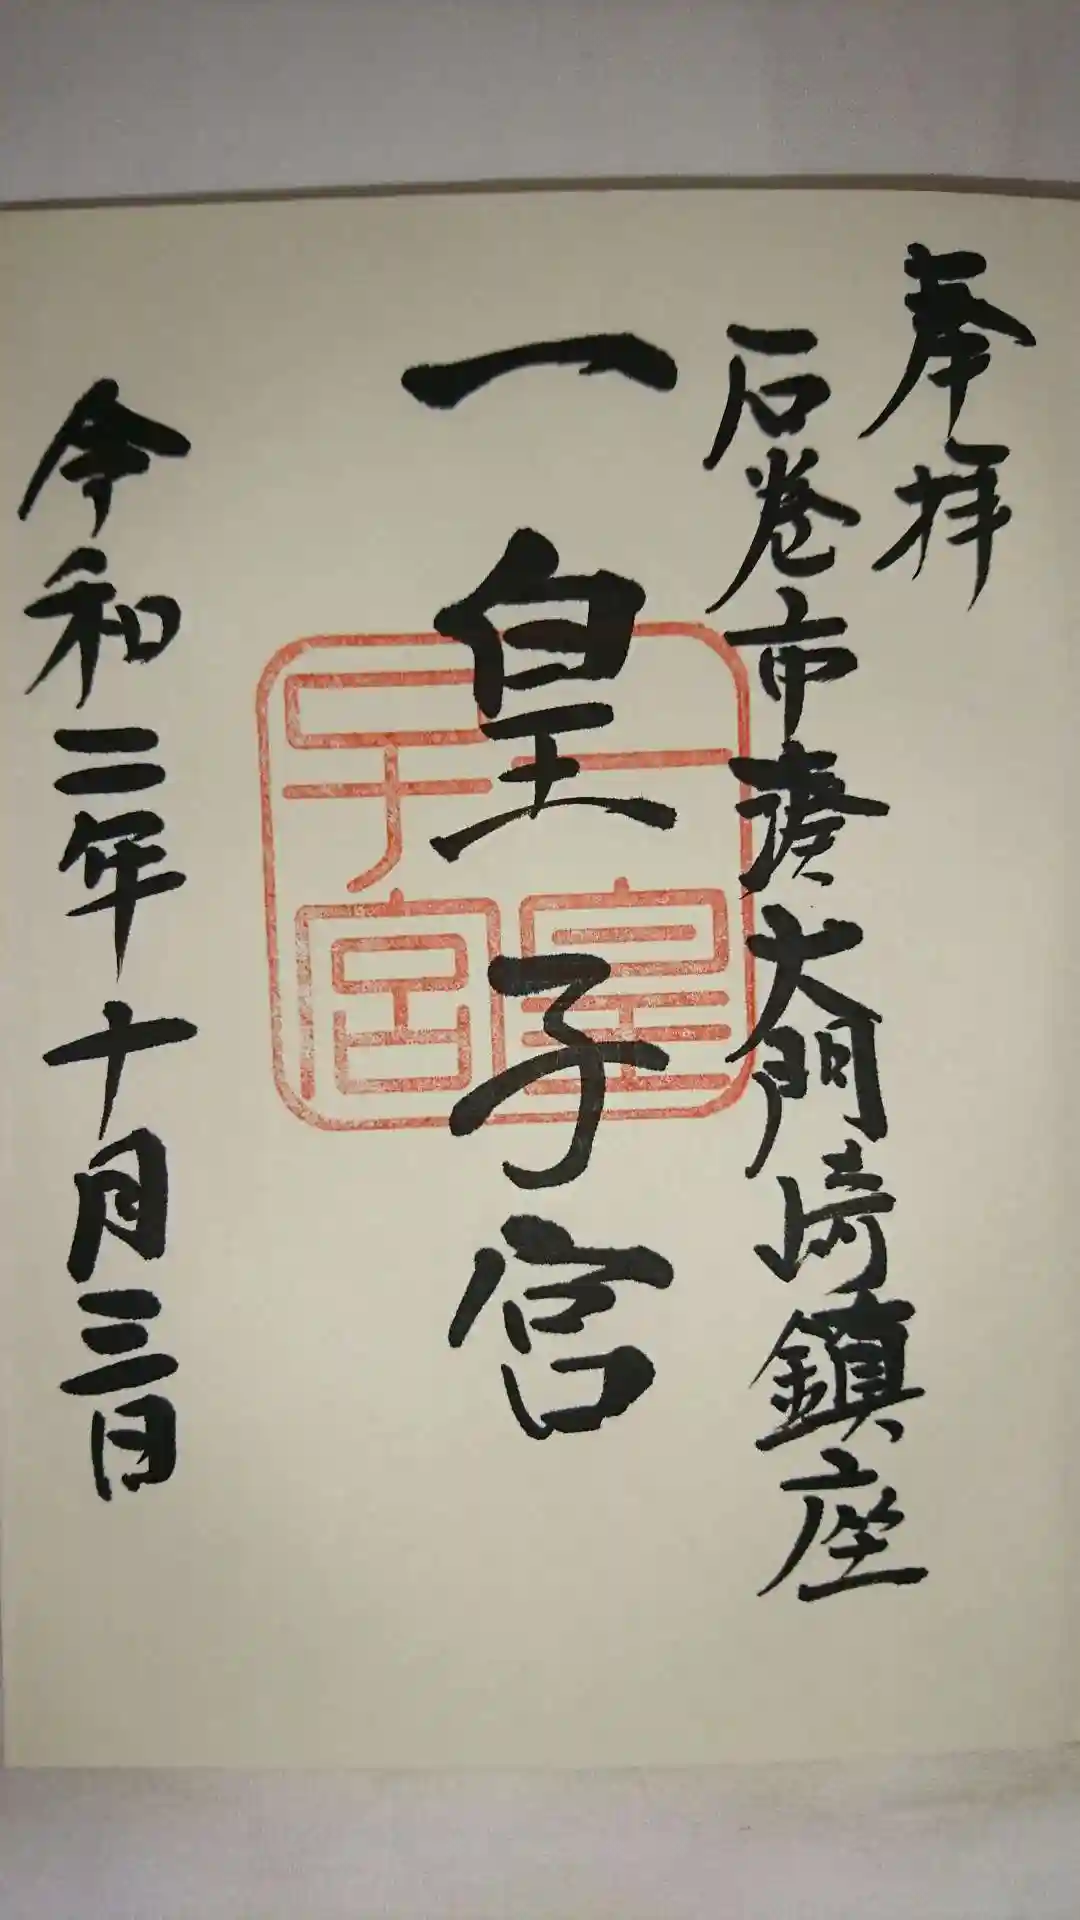 奉拝
石巻市湊大門崎鎮座
一皇子宮
一皇
子宮
令和二年十月三日